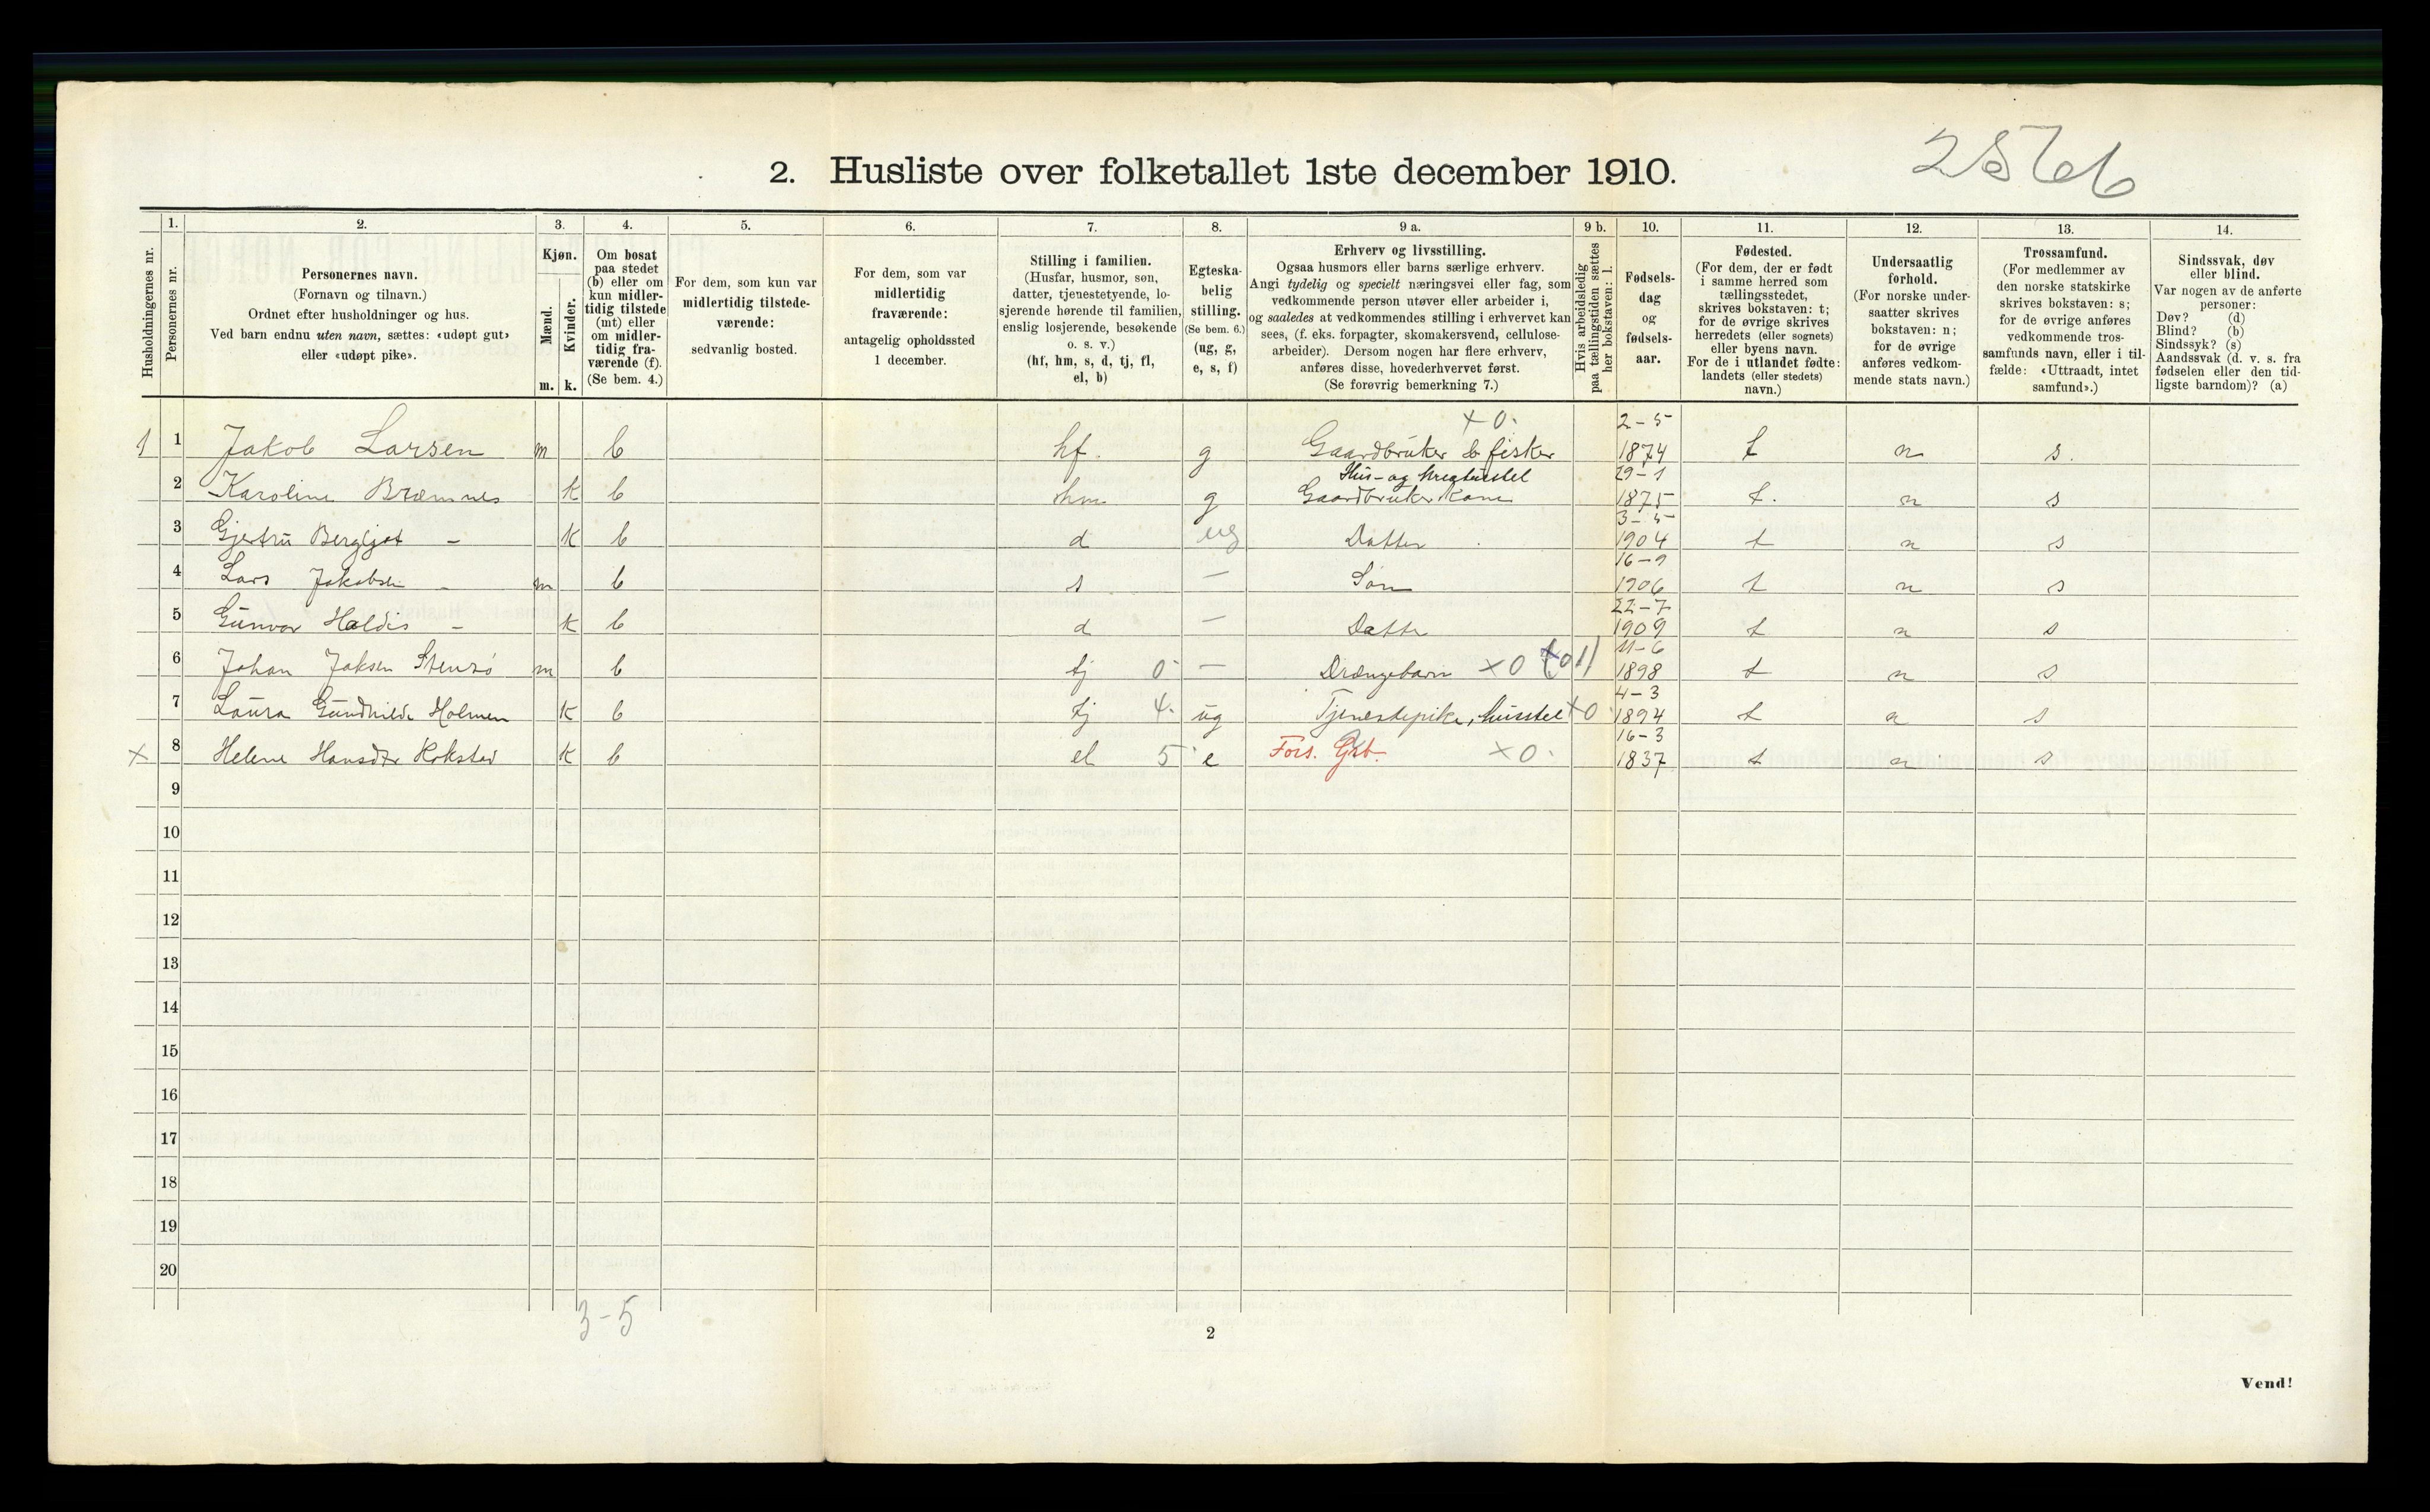 2. Husliste over folketallet 1ste december 1910.
Husholdningernes nr.
1.
Personernes nr.
2.
Personernes navn.
(Fornavn og tilnavn.)
Ordnet efter husholdninger og hus.
Ved barn endnu uten navn, sættes: «udøpt gut»
eller «udøpt pike».
3.
Kjøn.
Mænd.
Kvinder.
m. k.
4.
Om bosat
paa stedet
(b) eller om
kun midler-
tidig tilstede
(mt) eller
om midler-
tidig fra-
værende (f).
(Se bem. 4.)
5.
For dem, som kun var
midlertidig tilstede-
værende:
sedvanlig bosted.
6.
For dem, som var
midlertidig
fraværende:
antagelig opholdssted
1 december.
7.
Stilling i familien.
(Husfar, husmor, søn,
datter, tjenestetyende, lo-
sjerende hørende til familien,
enslig losjerende, besøkende
o. s. v.)
(hf, hm, s, d, tj, fl,
el, b)
8.
Egteska-
belig
stilling.
(Se bem. 6.)
(ug, g,
e, s, f)
9 a.
Erhverv og livsstilling.
Ogsaa husmors eller barns særlige erhverv.
Angi tydelig og specielt næringsvei eller fag, som
vedkommende person utøver eller arbeider i,
og saaledes at vedkommendes stilling i erhvervet kan
sees, (f. eks. forpagter, skomakersvend, cellulose-
arbeider). Dersom nogen har flere erhverv,
anføres disse, hovederhvervet først.
(Se forøvrig bemerkning 7.)
9 b.
Hvis arbeidsledig
paa tællingstiden sættes
her bokstaven: l.
10.
Fødsels-
dag
og
fødsels-
aar.
11.
Fødested.
(For dem, der er født
i samme herred som
tællingsstedet,
skrives bokstaven: t;
for de øvrige skrives
herredets (eller sognets)
eller byens navn.
For de i utlandet fødte:
landets (eller stedets)
navn.)
12.
Undersaatlig
forhold.
(For norske under-
saatter skrives
bokstaven: n;
for de øvrige
anføres vedkom-
mende stats navn.)
13.
Trossamfund.
(For medlemmer av
den norske statskirke
skrives bokstaven: s;
for de øvrige anføres
vedkommende tros-
samfunds navn, eller i til-
fælde: «Uttraadt, intet
samfund».)
14.
Sindssvak, døv
eller blind.
Var nogen av de anførte
personer:
Døv? (d)
Blind? (b)
Sindssyk? (s)
Aandssvak (d. v. s. fra
fødselen eller den tid-
ligste barndom)? (a)
x 0. 2-5
1 1 Jakob Larsen m b hf. g Gaardbruker & fisker 1874 t n s.
Hus- og kreaturstel 29-1
2 Karoline Bræmnes k b hm g Gaardbruker kone 1875 t. n s
3-5
3 Gjertru Bergljot - k b d ug Datter 1904 t n s
16-9
4 Lars Jakobsen - m b s - Søn 1906 t n s
22-7
5 Gunvor Haldis - k b d - Datter 1909 t n s
11-6
6 Johan Jaksen Stensø m b tj 0 - Drængebarn x0 1898 t n s
4-3
7 Laura Gundhilde Holmen k b tj 4. ug Tjenestepike, husstel x0 1894 t n s
16-3
x 8 Helene Hansdtr Kokstad k b el 5 e Fors. Gkb. x0. 1837 t n s
9
10
11
12
13
14
15
16
17
18
19
20
3-5
2
Vend!